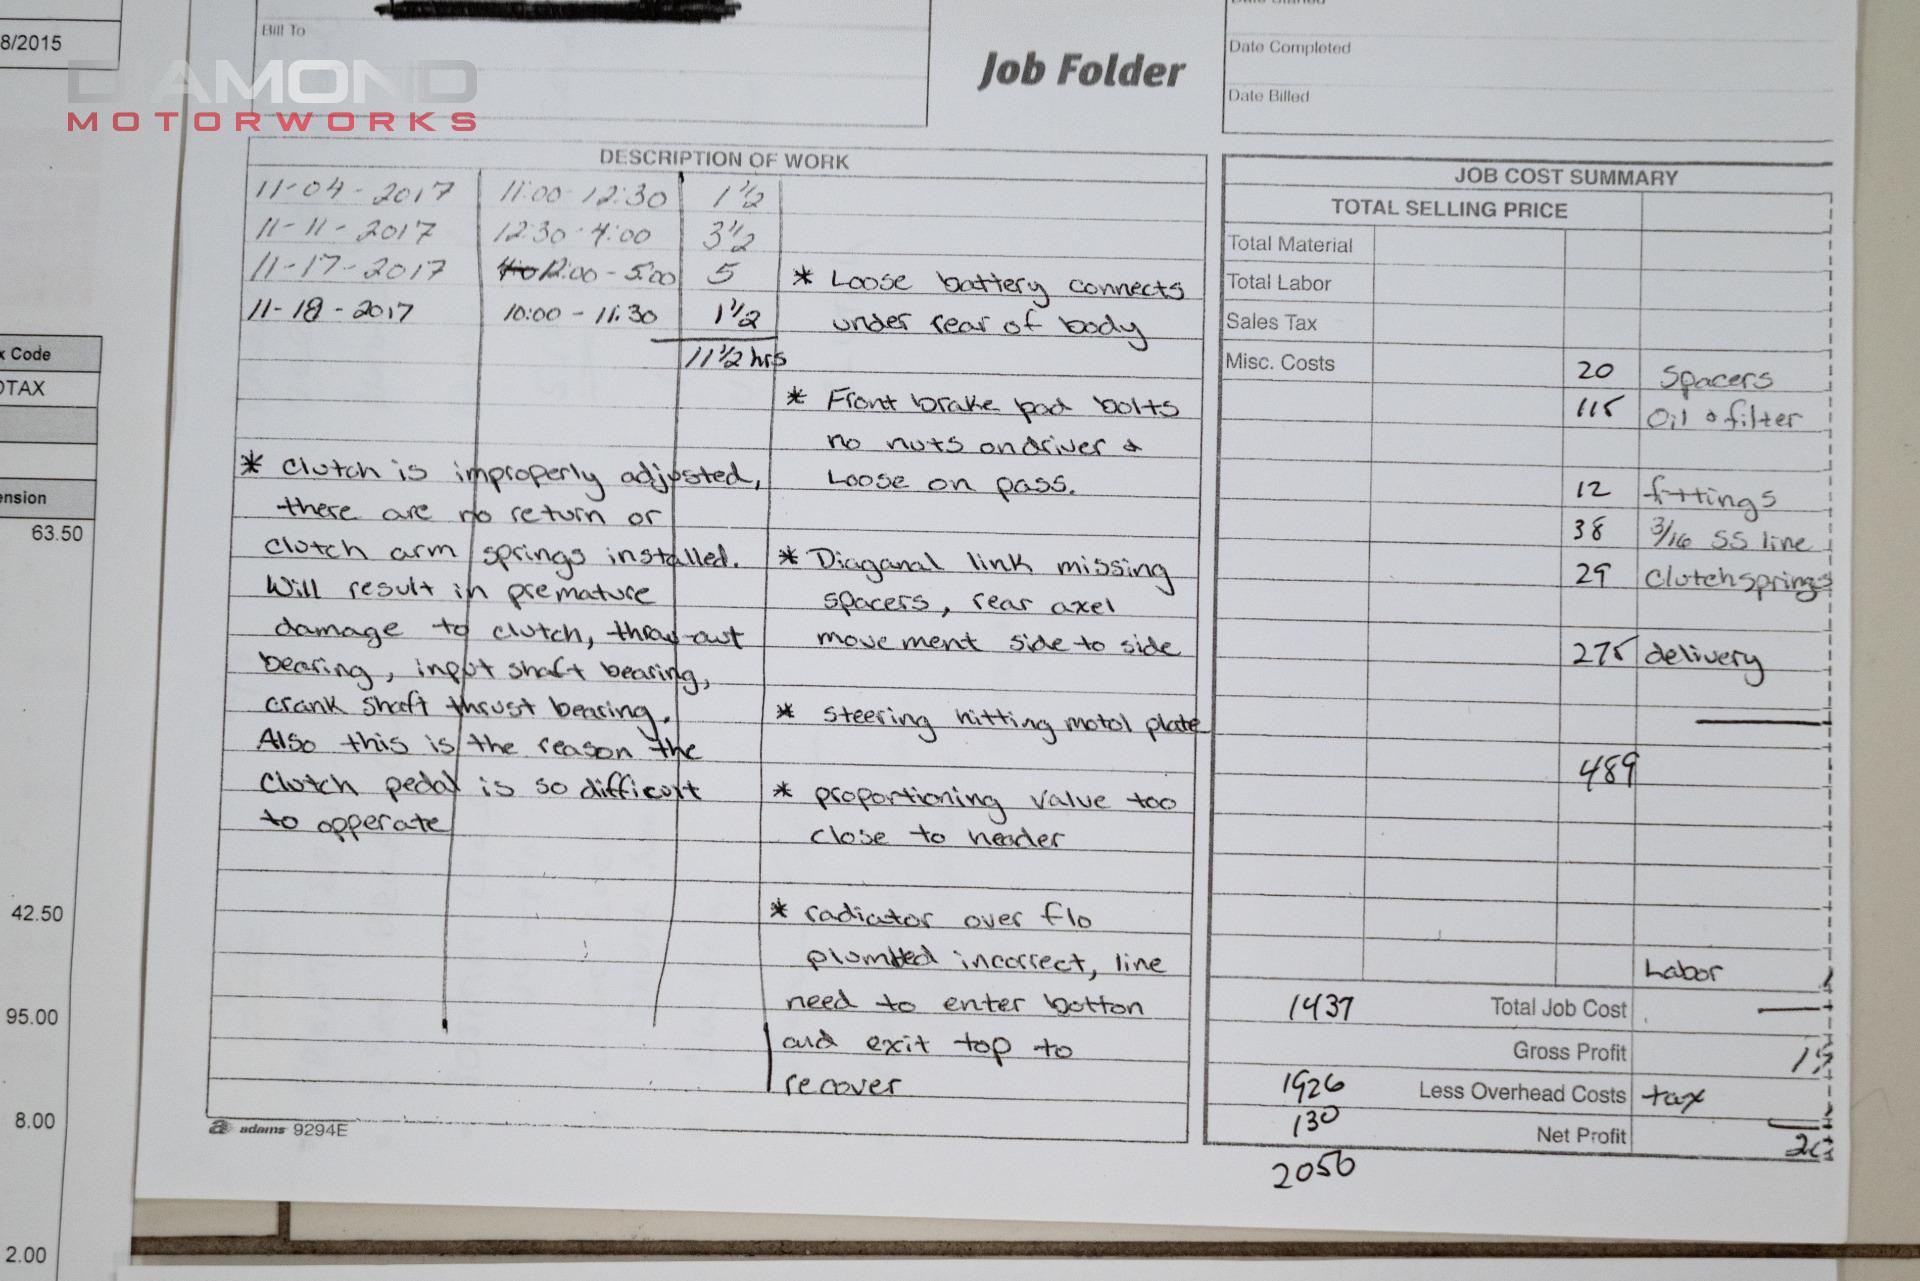 8/2015
DIAMOND
MOTORWORKS
Bill To
Job Folder
Date Completed
Date Billed
DESCRIPTION OF WORK
11-04-2017 11:00-12:30 1 1/2
11-11-2017 12:30-4:00 3 1/2
11-17-2017 12:00-5:00 5
11-18-2017 10:00-11:30 1 1/2
11 1/2 hrs
* clutch is improperly adjusted,
there are no return or
clutch arm springs installed.
Will result in premature
damage to clutch, throw-out
bearing, input shaft bearing,
crank shaft thrust bearing.
Also this is the reason the
clutch pedal is so difficult
to opperate
* Loose battery connects
under rear of body
* Front brake pad bolts
no nuts on driver &
Loose on pass.
* Diaganal link missing
spacers, rear axel
movement side to side
* steering hitting motol plate
* proportioning value too
close to header
* radiator over flo
plumbed incorrect, line
need to enter botton
and exit top to
recover
adams 9294E
JOB COST SUMMARY
TOTAL SELLING PRICE
Total Material
Total Labor
Sales Tax
Misc. Costs 20 Spacers
115 Oil & filter
12 fittings
38 3/16 SS line
29 clutch springs
275 delivery
489
Labor
1437 Total Job Cost
Gross Profit
1926 Less Overhead Costs tax
130 Net Profit
2056
x Code
OTAX
ension
63.50
42.50
95.00
8.00
2.00